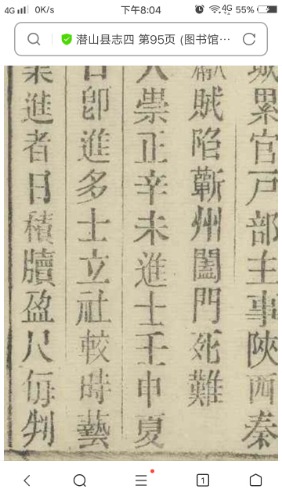 4G 0K/s 下午8:04 4G 55%
潜山县志四 第95页 (图书馆…
城累官戸部主事陝西秦
賊陷蘄州闔門死難
人崇正辛未進士壬申夏
日卽進多士立社較時藝
業進者日積牘盈尺每判
1